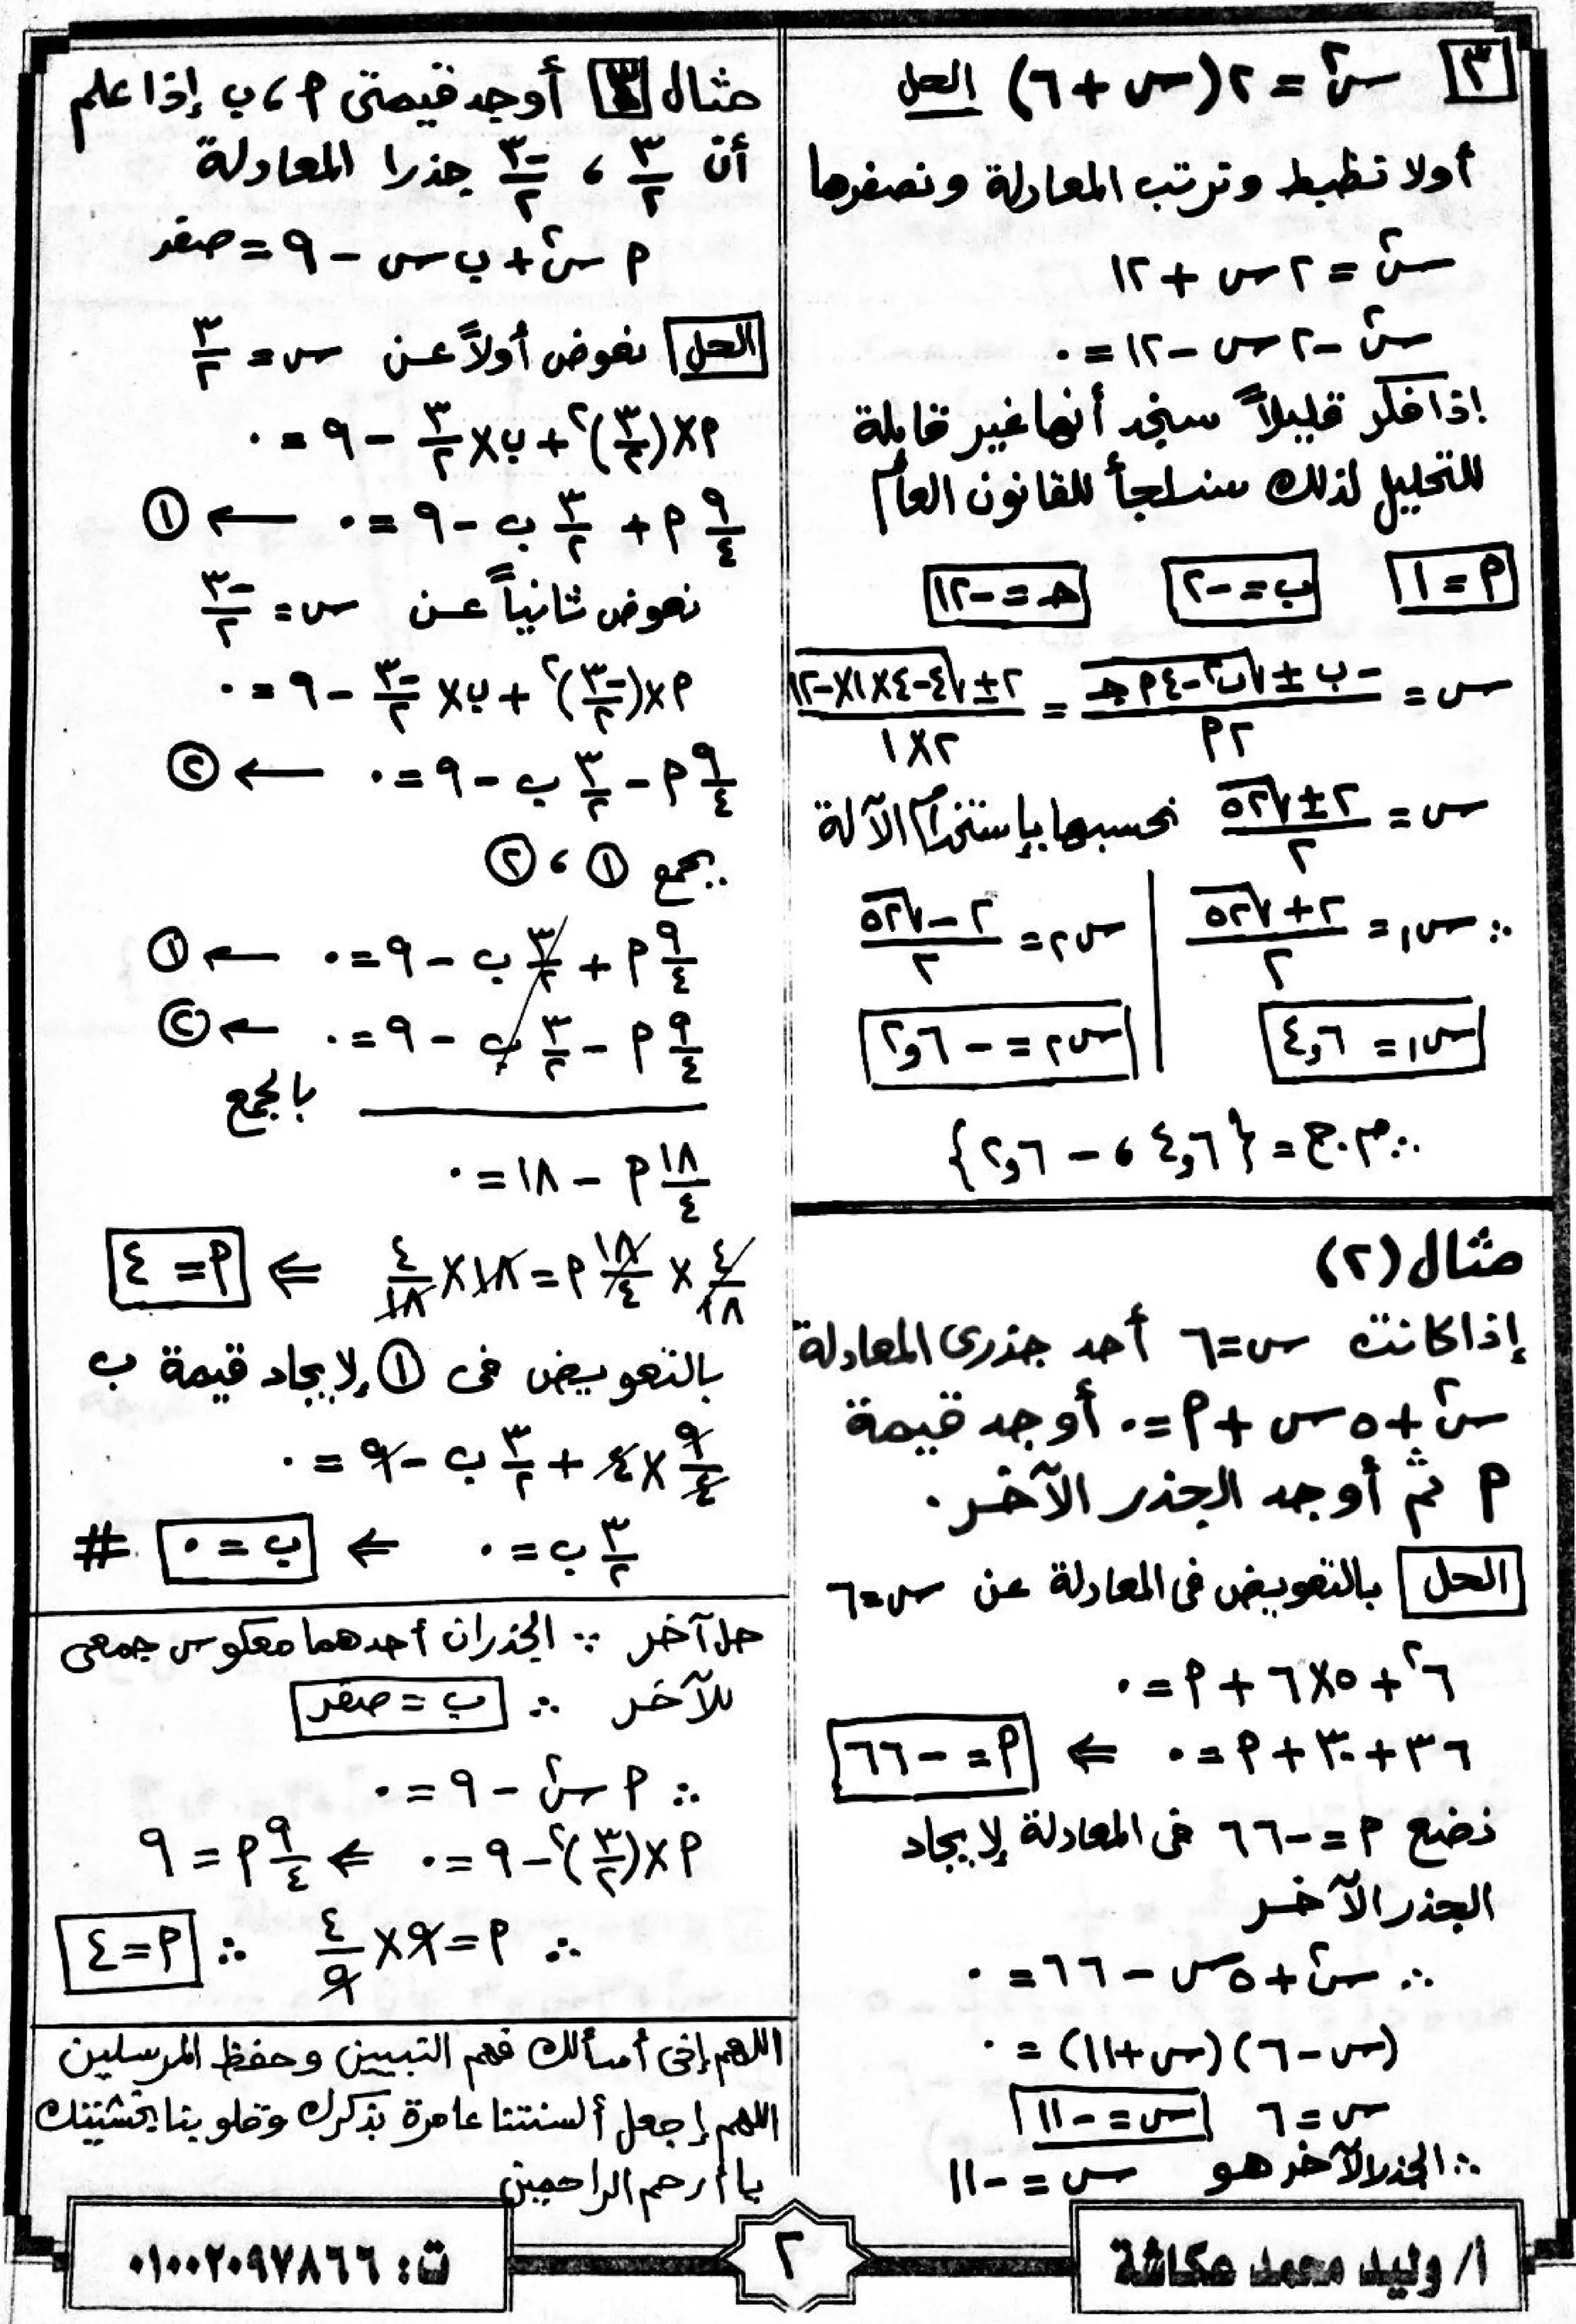 ٣ س٢ = ٢(س + ٦) الحل
أولا نظبط ونرتب المعادلة ونصفرها
س٢ = ٢س + ١٢
س٢ - ٢س - ١٢ = ٠
إذا فكر قليلاً سنجد أنها غير قابلة
للتحليل لذلك سنلجأ للقانون العام
م = ١ ب = -٢ حـ = -١٢
س = (-ب ± √(ب٢ - ٤ م حـ)) / ٢م = (٢ ± √(٤ - ٤×١×-١٢)) / ٢×١
س = (٢ ± √٥٢) / ٢ نحسبها بإستخدام الآلة
∴ س١ = (٢ + √٥٢) / ٢ | س٢ = (٢ - √٥٢) / ٢
س١ = ٤,٦ | س٢ = -٢,٦
∴ م.ح = {٤,٦ ، -٢,٦}
مثال (٢)
إذا كانت س = ٦ أحد جذرى المعادلة
س٢ + ٥س + م = ٠ أوجد قيمة
م ثم أوجد الجذر الآخر.
الحل بالتعويض فى المعادلة عن س = ٦
٦٢ + ٥×٦ + م = ٠
٣٦ + ٣٠ + م = ٠ ⇐ م = -٦٦
نضع م = -٦٦ فى المعادلة لإيجاد
الجذر الآخر
∴ س٢ + ٥س - ٦٦ = ٠
(س - ٦)(س + ١١) = ٠
س = ٦ س = -١١
∴ الجذر الآخر هو س = -١١
مثال ٣ أوجد قيمتى م ، ب إذا علم
أن ٣/٢ ، -٣/٢ جذرا المعادلة
م س٢ + ب س - ٩ = صفر
الحل نعوض أولاً عن س = ٣/٢
م×(٣/٢)٢ + ب×٣/٢ - ٩ = ٠
٩/٤ م + ٣/٢ ب - ٩ = ٠ ← ①
نعوض ثانياً عن س = -٣/٢
م×(-٣/٢)٢ + ب×-٣/٢ - ٩ = ٠
٩/٤ م - ٣/٢ ب - ٩ = ٠ ← ②
بجمع ① ، ②
٩/٤ م + ٣/٢ ب - ٩ = ٠ ← ①
٩/٤ م - ٣/٢ ب - ٩ = ٠ ← ②
بالجمع
١٨/٤ م - ١٨ = ٠
٤/١٨ × ١٨/٤ م = ١٨ × ٤/١٨ ⇐ م = ٤
بالتعويض فى ① لإيجاد قيمة ب
٩/٤ × ٤ + ٣/٢ ب - ٩ = ٠
٣/٢ ب = ٠ ⇐ ب = ٠ #
حل آخر ∵ الجذران أحدهما معكوس جمعى
للآخر ∴ ب = صفر
∴ م س٢ - ٩ = ٠
م×(٣/٢)٢ - ٩ = ٠ ⇐ ٩/٤ م = ٩
∴ م = ٩ × ٤/٩ ∴ م = ٤
اللهم إنى أسألك فهم النبيين وحفظ المرسلين
اللهم إجعل ألسنتنا عامرة بذكرك وقلوبنا بخشيتك
يا أرحم الراحمين
أ/ وليد محمد عكاشة
٢
ت: ٠١٠٠٢٠٩٧٨٦٦